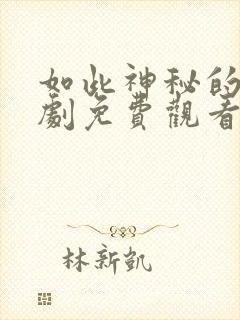 如此神秘的
劇免費觀看
林新凱